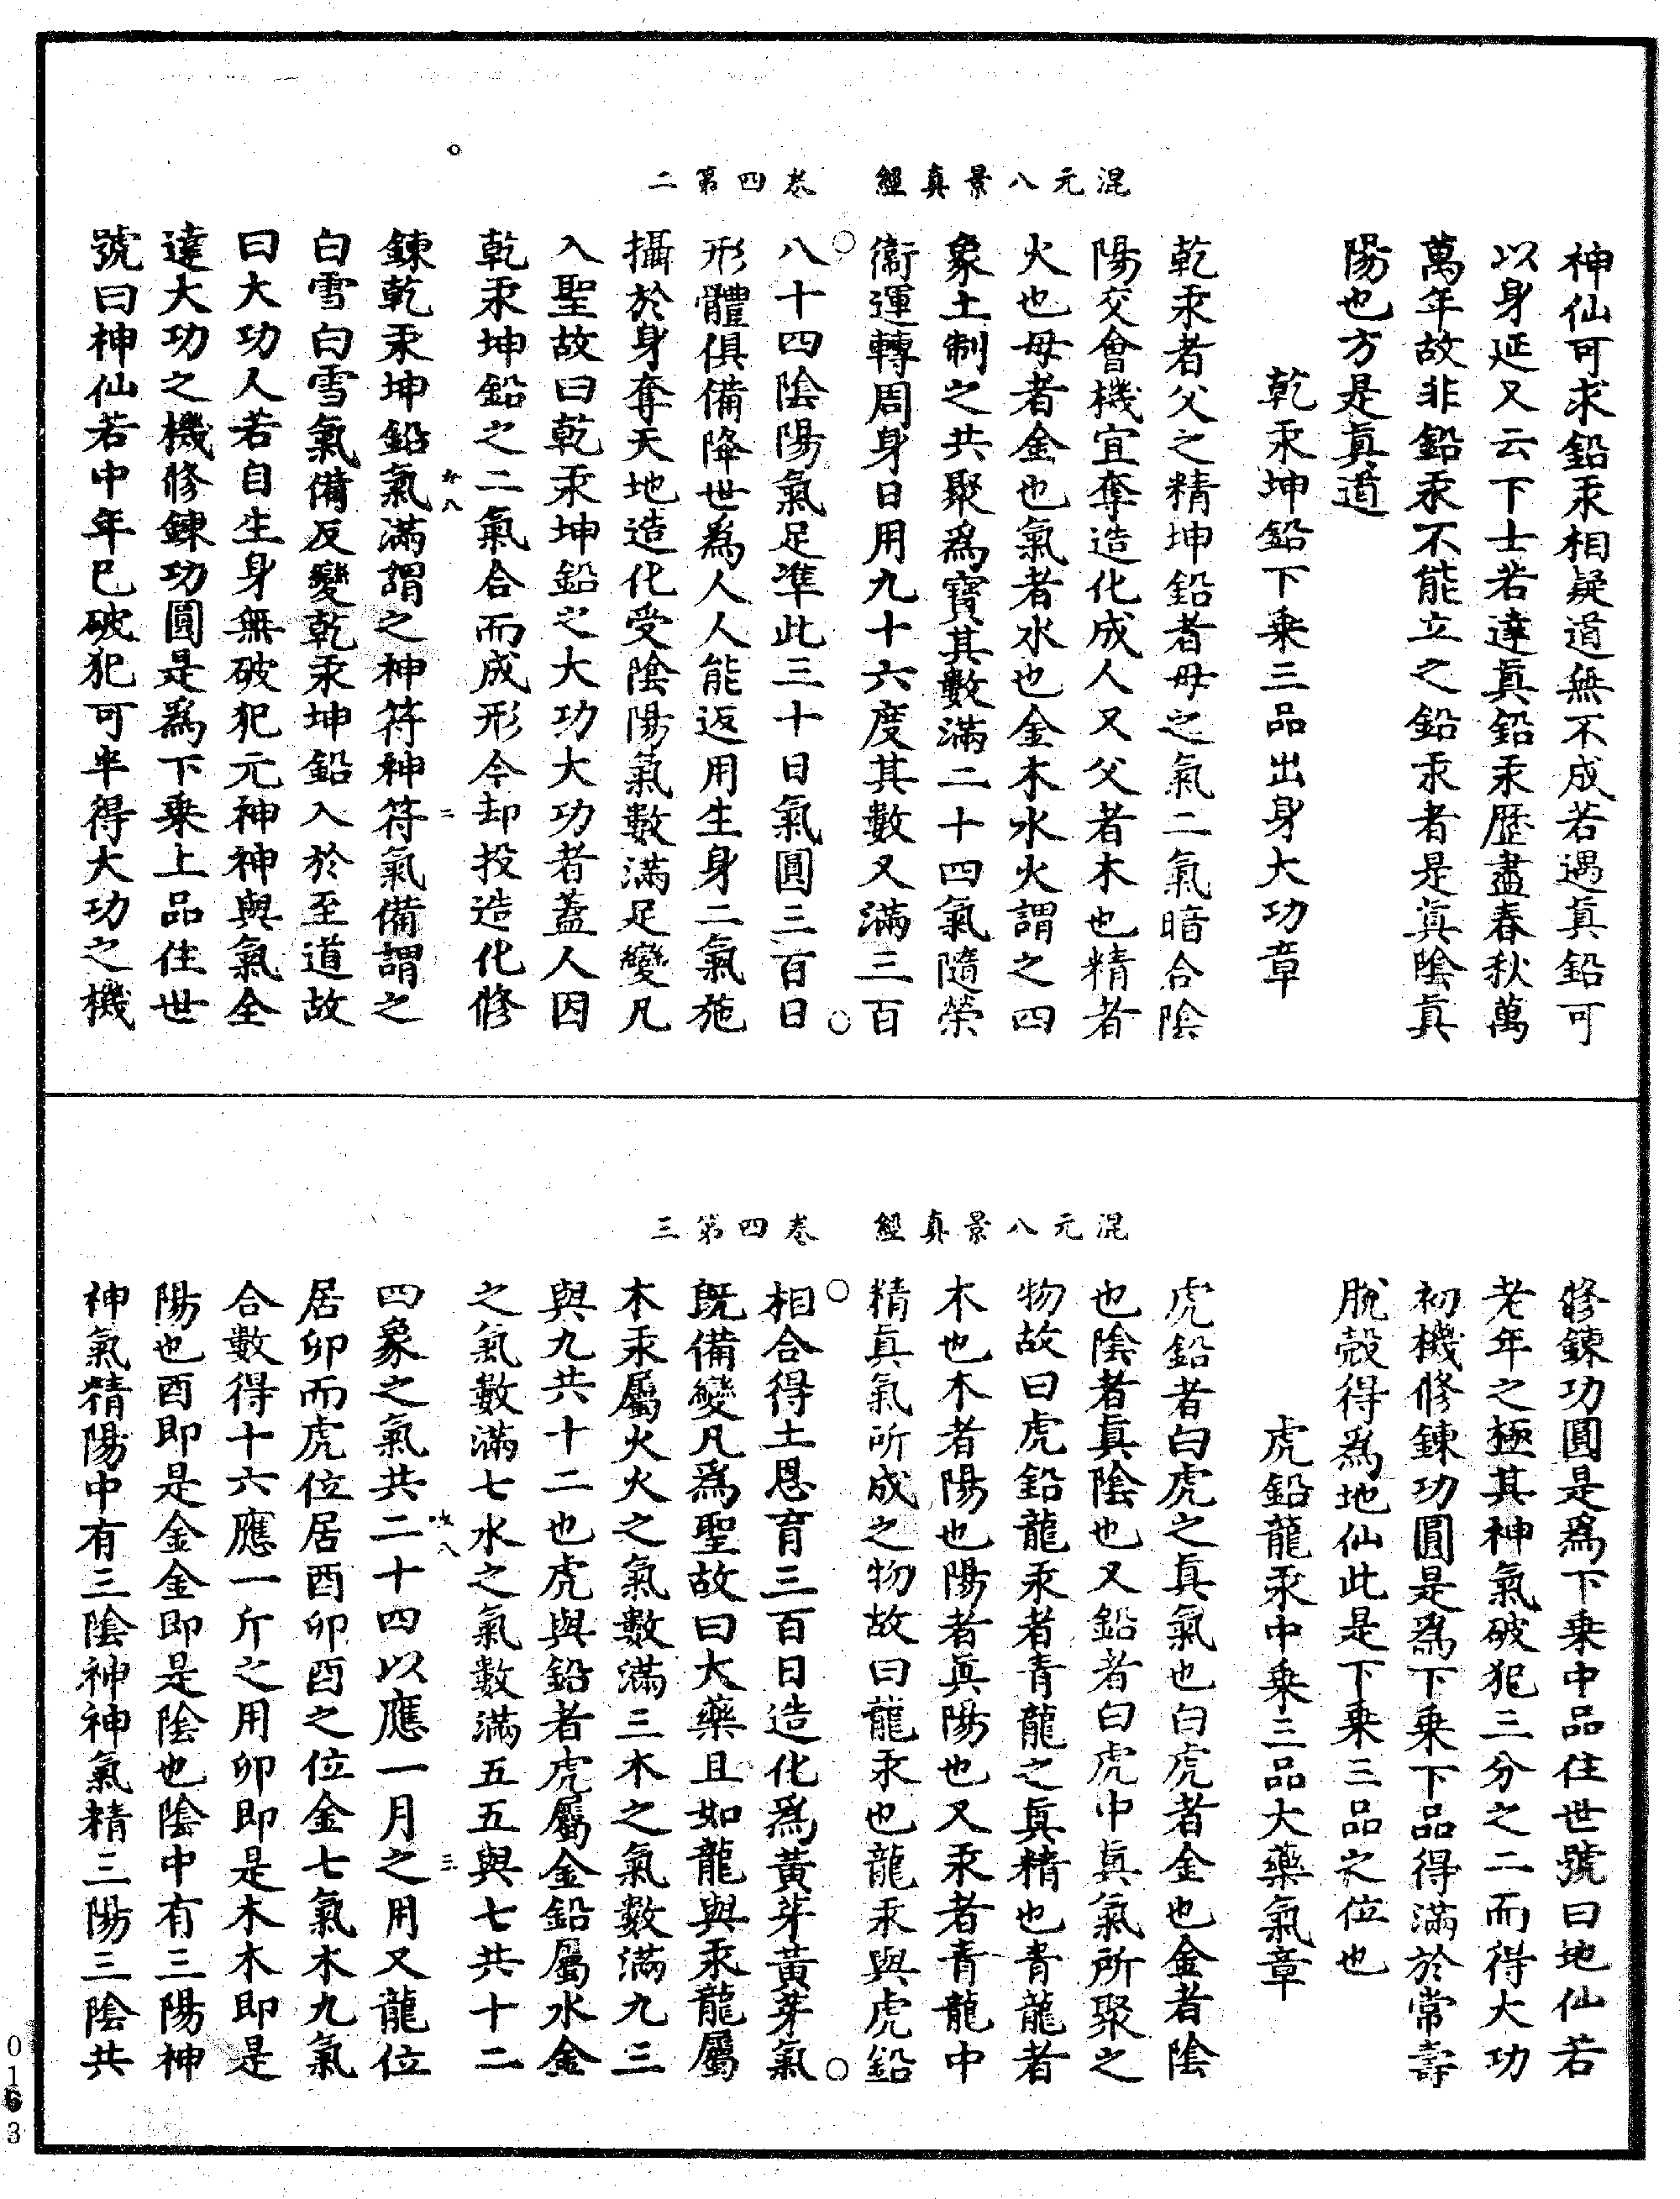 混元八景真經　卷四第二
神仙可求鉛汞相疑道無不成若遇真鉛可
以身延又云下士若達真鉛汞歷盡春秋萬
萬年故非鉛汞不能立之鉛汞者是真陰真
陽也方是真道
乾汞坤鉛下乗三品出身大功章
乾汞者父之精坤鉛者母之氣二氣暗合陰
陽交會機宜奪造化成人又父者木也精者
火也母者金也氣者水也金木水火謂之四
象土制之共聚為寶其數滿二十四氣隨榮
衛運轉周身日用九十六度其數又滿三百
八十四陰陽氣足準此三十日氣圓三百日
形體俱備降世為人人能返用生身二氣施
攝於身奪天地造化受陰陽氣數滿足變凡
入聖故曰乾汞坤鉛之大功大功者蓋人因
乾汞坤鉛之二氣合而成形今却投造化修
鍊乾汞坤鉛氣滿謂之神符神符氣備謂之
白雪白雪氣備反變乾汞坤鉛入於至道故
曰大功人若自生身無破犯元神神與氣全
達大功之機修鍊功圓是為下乗上品住世
號曰神仙若中年已破犯可半得大功之機
混元八景真經　卷四第三
修鍊功圓是為下乗中品住世號曰地仙若
老年之極其神氣破犯三分之二而得大功
初機修鍊功圓是為下乗下品得滿於常壽
脫殼得為地仙此是下乗三品之位也
虎鉛龍汞中乗三品大藥氣章
虎鉛者白虎之真氣也白虎者金也金者陰
也陰者真陰也又鉛者白虎中真氣所聚之
物故曰虎鉛龍汞者青龍之真精也青龍者
木也木者陽也陽者真陽也又汞者青龍中
精真氣所成之物故曰龍汞也龍汞與虎鉛
相合得土恩育三百日造化為黃芽黃芽氣
既備變凡為聖故曰大藥且如龍與汞龍屬
木汞屬火火之氣數滿三木之氣數滿九三
與九共十二也虎與鉛者虎屬金鉛屬水金
之氣數滿七水之氣數滿五五與七共十二
四象之氣共二十四以應一月之用又龍位
居卯而虎位居酉卯酉之位金七氣木九氣
合數得十六應一斤之用卯即是木木即是
陽也酉即是金金即是陰也陰中有三陽神
神氣精陽中有三陰神神氣精三陽三陰共
0163